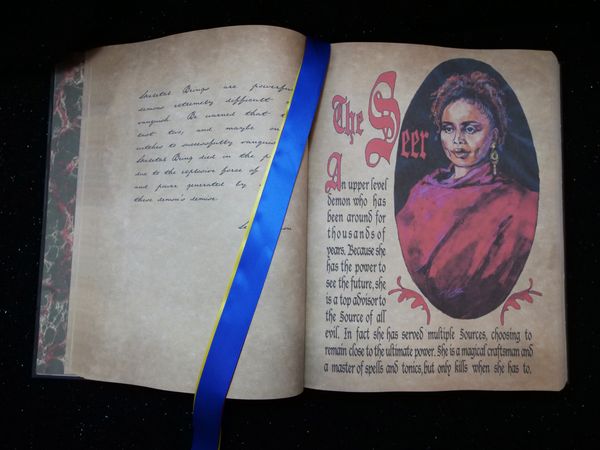 Societal Beings are powerful
demons extremely difficult
vanquish. Be warned that
last two, and maybe
witches to successfully vanquish
Societal Being died in the
due to the explosive force of
and power generated by
these demon's demise.
The Seer
An upper level
demon who has
been around for
thousands of
years. Because she
has the power to
see the future, she
is a top advisor to
the Source of all
evil. In fact she has served multiple Sources, choosing to
remain close to the ultimate power. She is a magical craftsman and
a master of spells and tonics, but only kills when she has to.